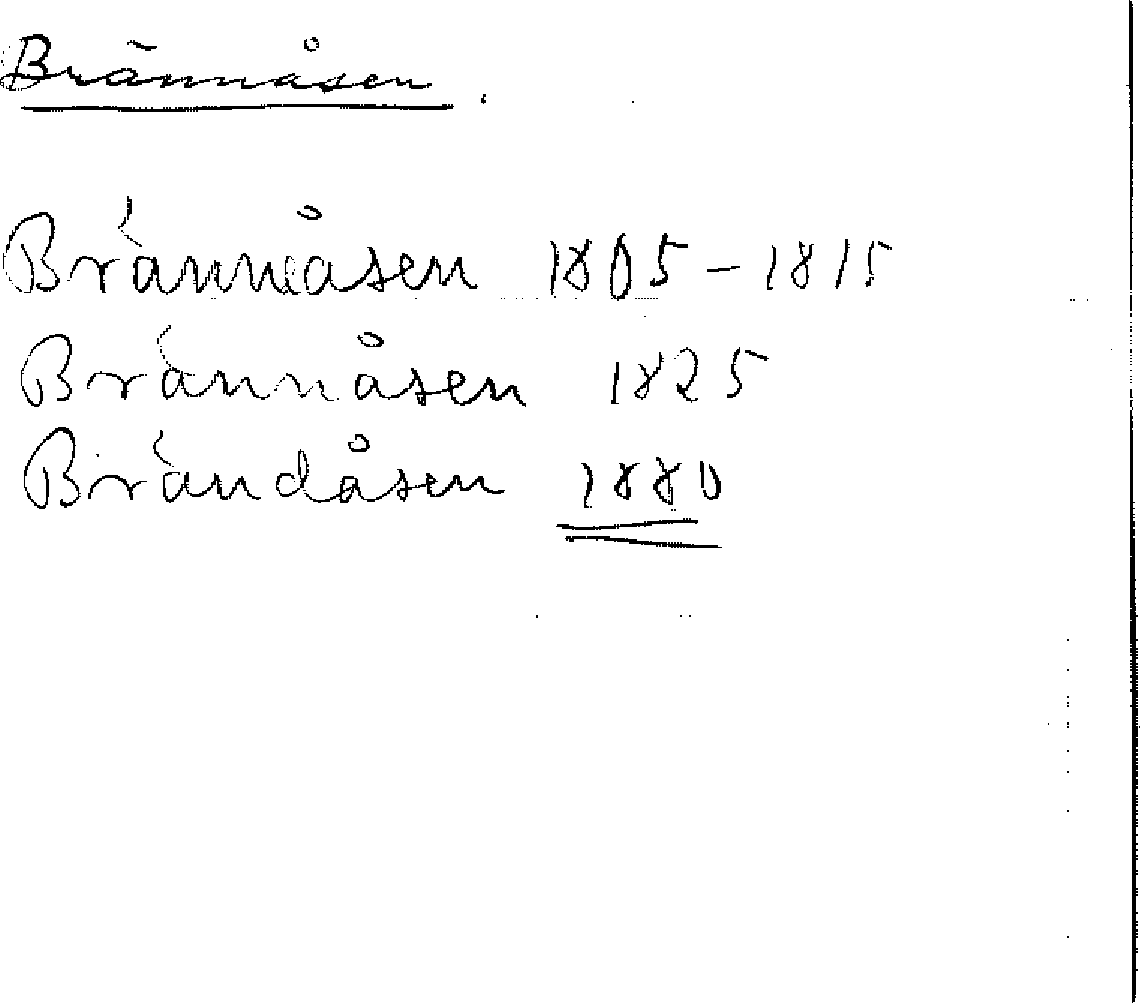 Brännåsen.
Brännåsen 1805-1815
Brännåsen 1825
Brändåsen 1880